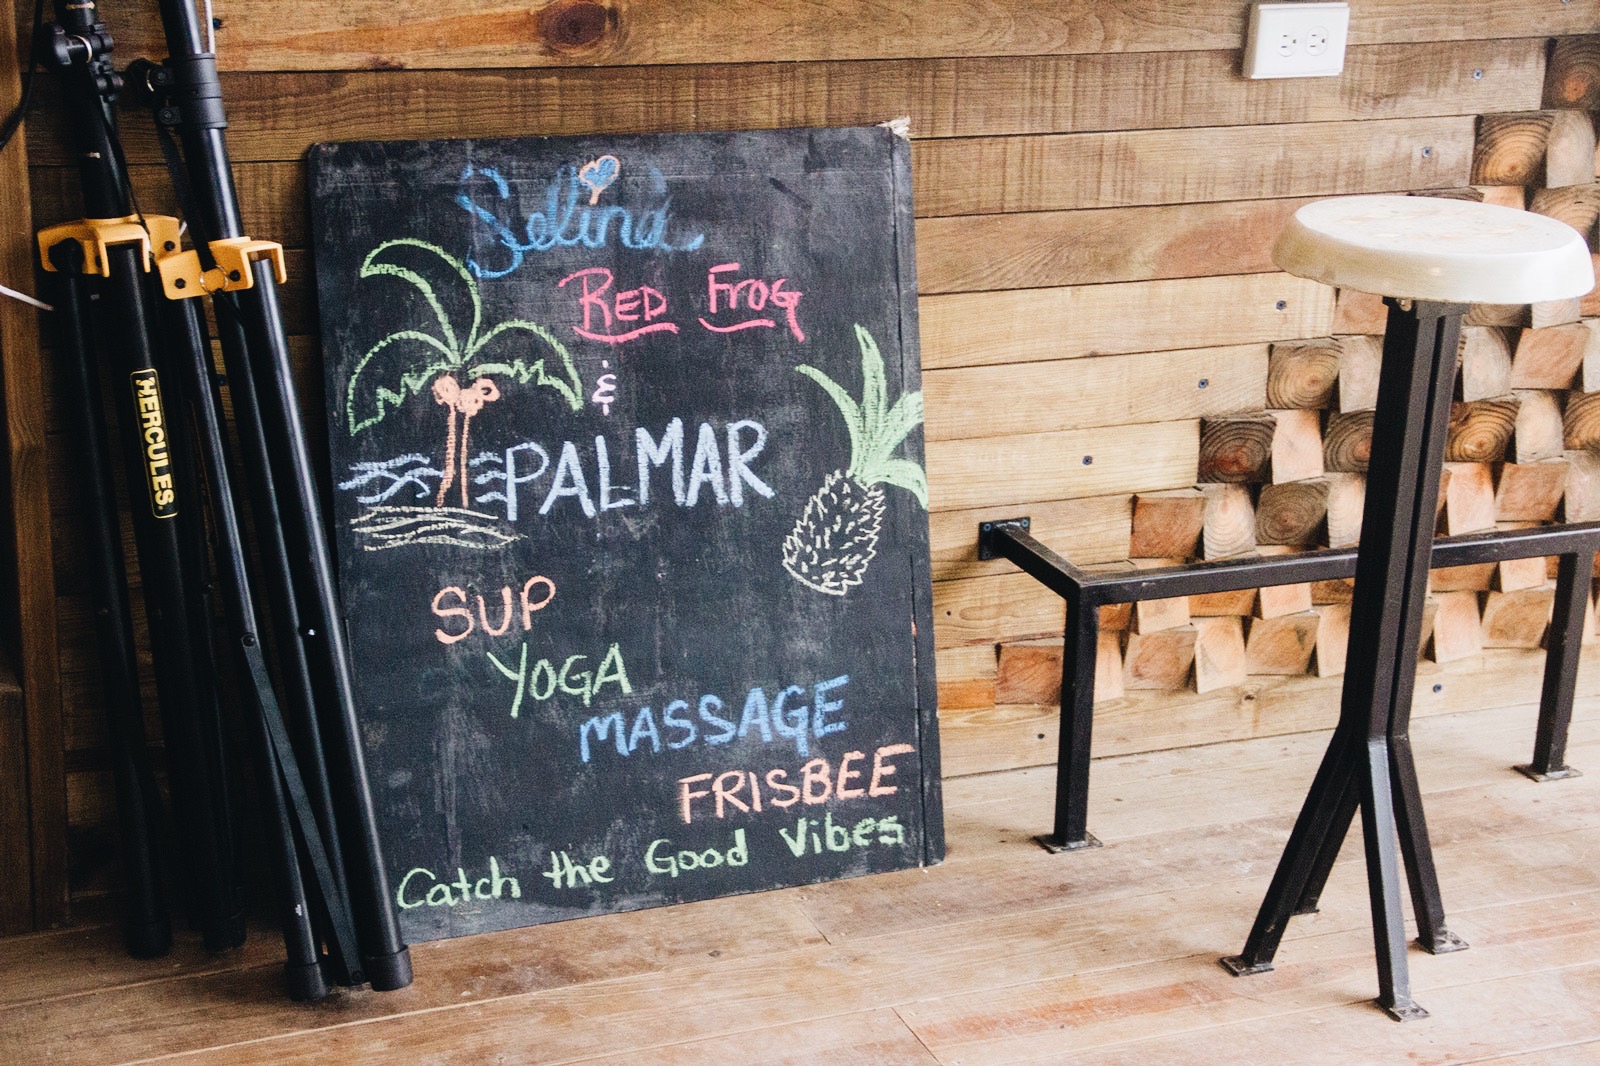 Selina
RED FROG
&
PALMAR
SUP
YOGA
MASSAGE
FRISBEE
Catch the Good Vibes
HERCULES